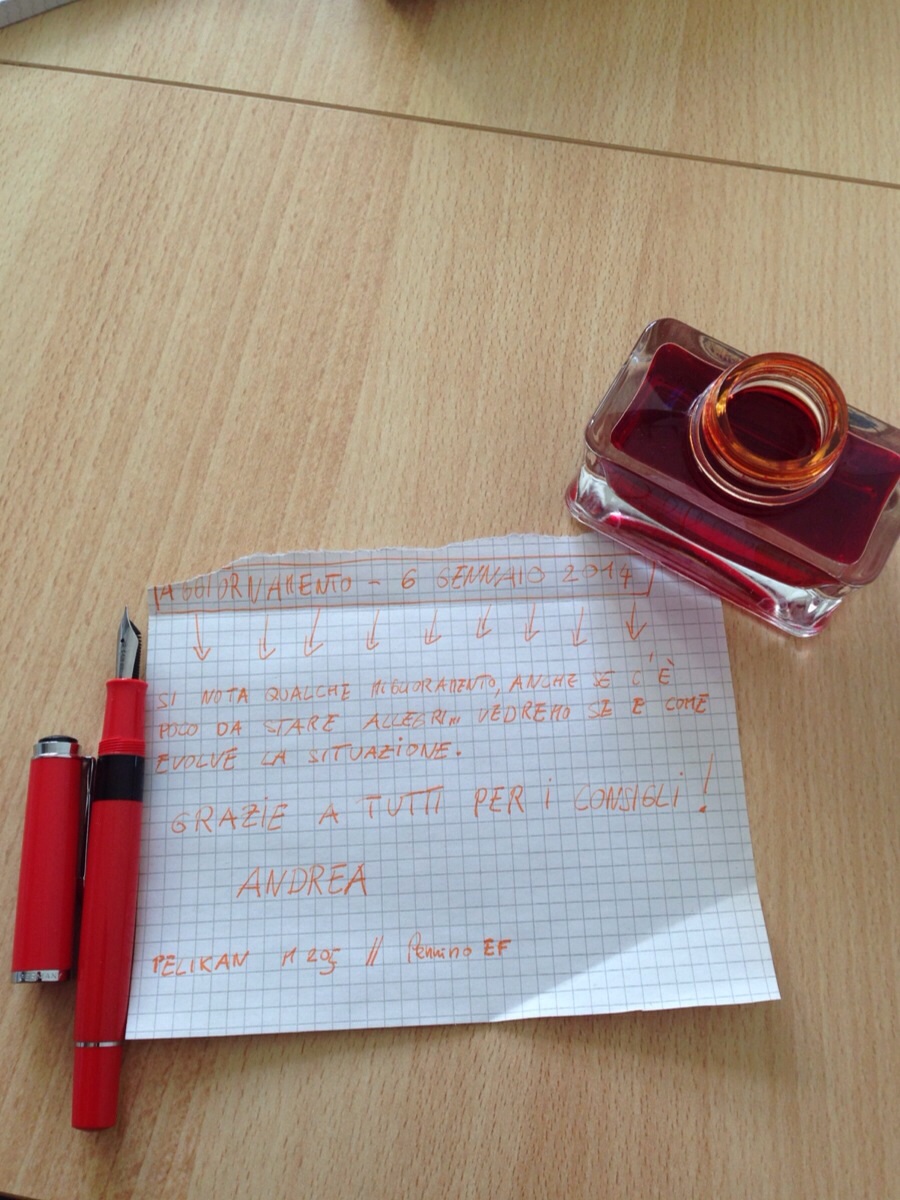 AGGIORNAMENTO - 6 GENNAIO 2014
SI NOTA QUALCHE MIGLIORAMENTO, ANCHE SE C'È
POCO DA STARE ALLEGRI... VEDREMO SE E COME
EVOLVE LA SITUAZIONE.
GRAZIE A TUTTI PER I CONSIGLI!
ANDREA
PELIKAN M 205 // Pennino EF